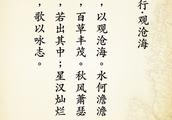 行·观沧海
，以观沧海。水何澹澹
，百草丰茂。秋风萧瑟
，若出其中；星汉灿烂
，歌以咏志。